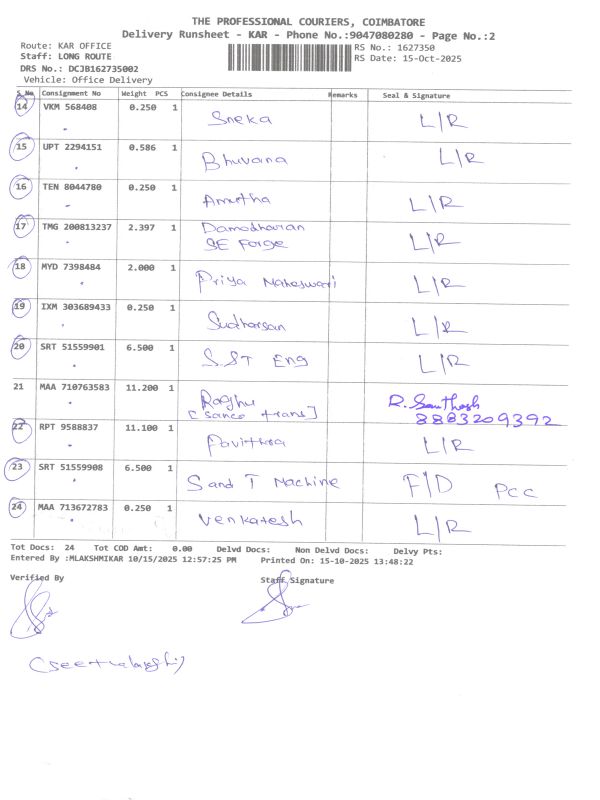 THE PROFESSIONAL COURIERS, COIMBATORE
Delivery Runsheet - KAR - Phone No.:9047080280 - Page No.:2
Route: KAR OFFICE RS No.: 1627350
Staff: LONG ROUTE RS Date: 15-Oct-2025
DRS No.: DCJB162735002
Vehicle: Office Delivery
S.No Consignment No Weight PCS Consignee Details Remarks Seal & Signature
14 VKM 568408 0.250 1 Sneka L/R
15 UPT 2294151 0.586 1 Bhuvana L/R
16 TEN 8044780 0.250 1 Amutha L/R
17 TMG 200813237 2.397 1 Damodharan L/R
SE Forge
18 MYD 7398484 2.000 1 Priya Maheswari L/R
19 IXM 303689433 0.250 1 Sudharsan L/R
20 SRT 51559901 6.500 1 S.ST Eng L/R
21 MAA 710763583 11.200 1 Raghu R. Santhosh
[Sanco trans] 8883209392
22 RPT 9588837 11.100 1 Pavithra L/R
23 SRT 51559908 6.500 1 S and T Machine F/D PCC
24 MAA 713672783 0.250 1 Venkatesh L/R
Tot Docs: 24 Tot COD Amt: 0.00 Delvd Docs: Non Delvd Docs: Delvy Pts:
Entered By :MLAKSHMIKAR 10/15/2025 12:57:25 PM Printed On: 15-10-2025 13:48:22
Verified By Staff Signature